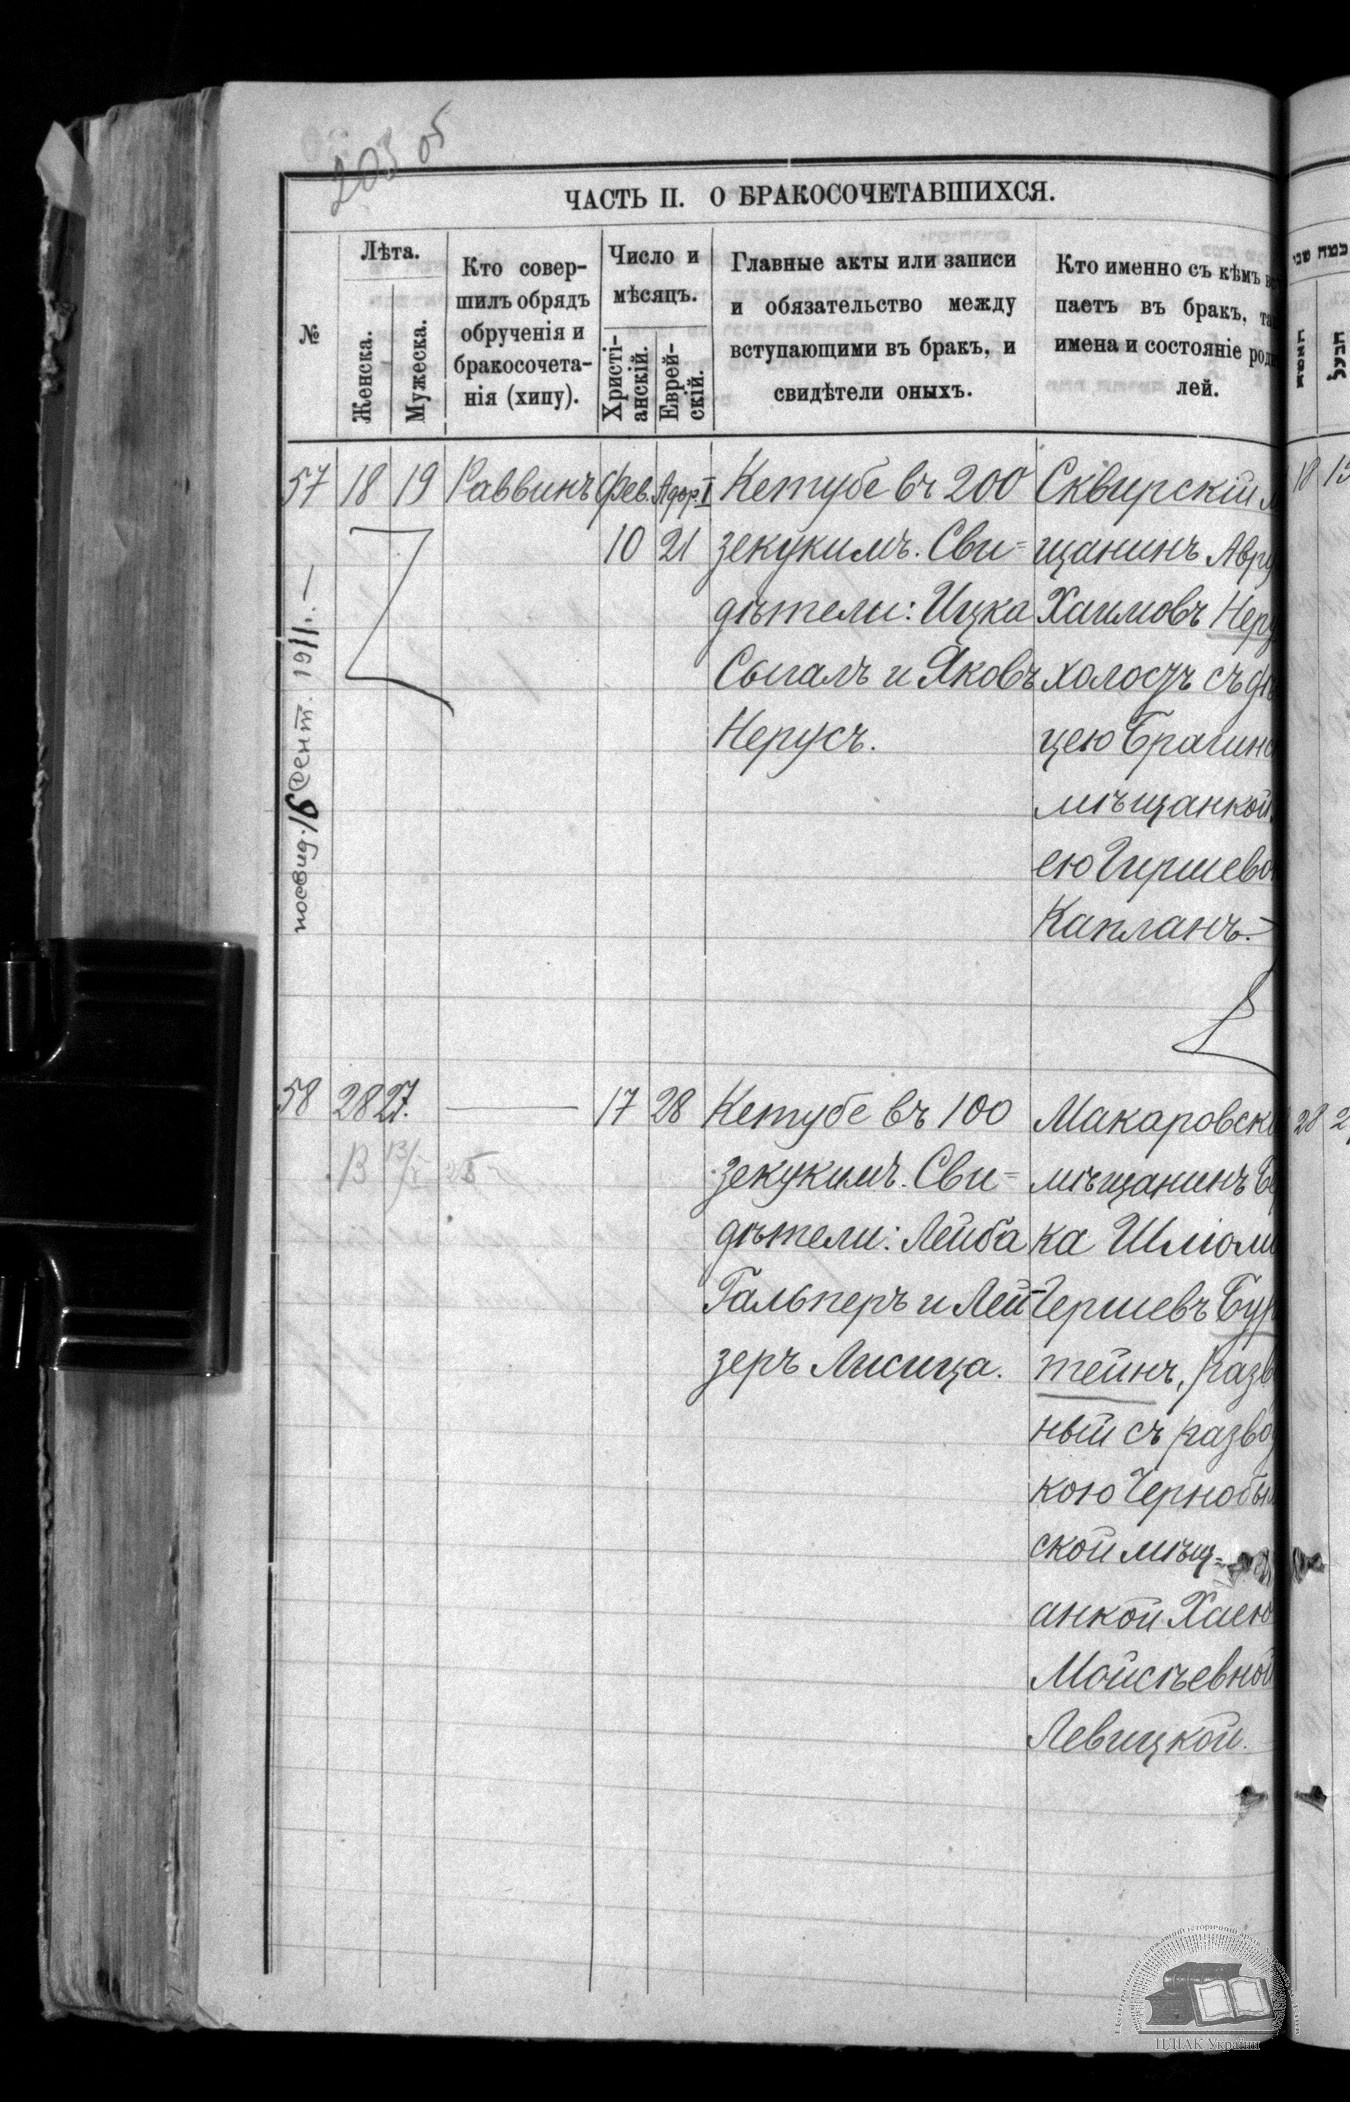 203 об
ЧАСТЬ II. О БРАКОСОЧЕТАВШИХСЯ.
№
Лѣта.
Женска.
Мужеска.
Кто совер-
шилъ обрядъ
обрученія и
бракосочета-
нія (хипу).
Число и
мѣсяцъ.
Христі-
анскій.
Еврей-
скій.
Главные акты или записи
и обязательство между
вступающими въ бракъ, и
свидѣтели оныхъ.
Кто именно съ кѣмъ вс
паетъ въ бракъ, та
имена и состояніе роди
лей.
57 18 19 Раввинъ Фев. Адар. I
10 21
Кетубе въ 200
зекукимъ. Сви-
дѣтели: Ицка
Сыгалъ и Яковъ
Нерусъ.
Сквирскій м
щанинъ Авру
Хаимовъ Неру
холостъ съ дѣ
цею Брагинс
мѣщанкой
ею Гиршево
Капланъ.
посвид. 19 сент. 1911. —
58 28 27. — 17 28
Кетубе въ 100
зекукимъ. Сви-
дѣтели: Лейба
Гальперъ и Лей-
зеръ Лисица.
Макаровск
мѣщанинъ Бе
ка Шлiом
Гершевъ Бур
тейнъ, разв
ный съ развод
кою Чернобыл
ской мѣщ-
анкой Хаею
Мойсѣевной
Левицкой.
18
28
ЦДІАК України